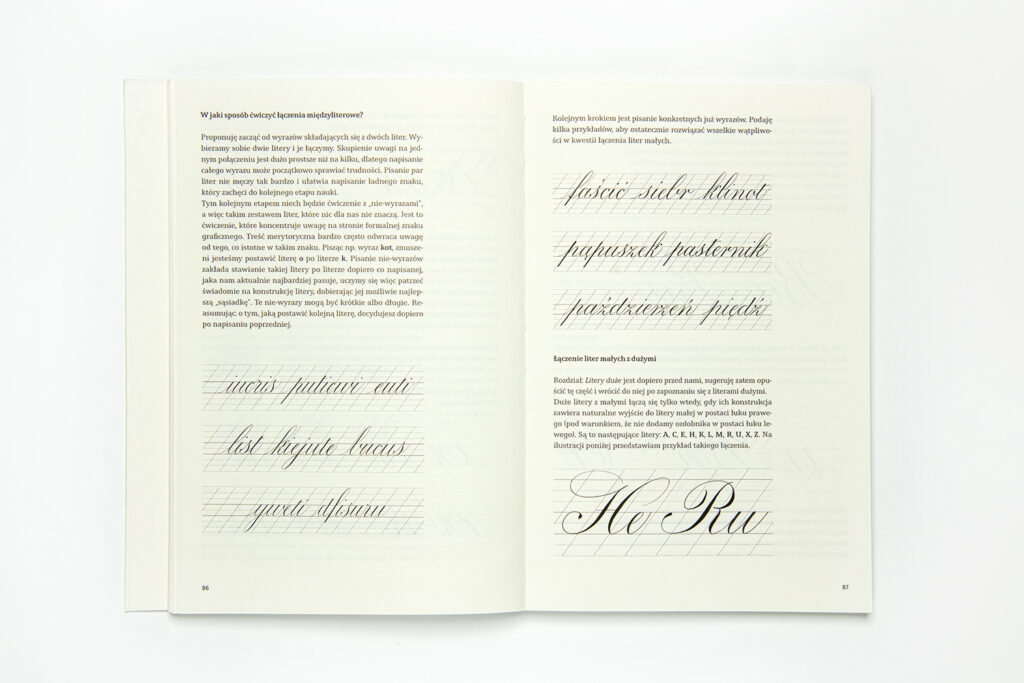 W jaki sposób ćwiczyć łączenia międzyliterowe?
Proponuję zacząć od wyrazów składających się z dwóch liter. Wy-
bieramy sobie dwie litery i je łączymy. Skupienie uwagi na jed-
nym połączeniu jest dużo prostsze niż na kilku, dlatego napisanie
całego wyrazu może początkowo sprawiać trudności. Pisanie par
liter nie męczy tak bardzo i ułatwia napisanie ładnego znaku,
który zachęci do kolejnego etapu nauki.
Tym kolejnym etapem niech będzie ćwiczenie z „nie-wyrazami”,
a więc takim zestawem liter, które nic dla nas nie znaczą. Jest to
ćwiczenie, które koncentruje uwagę na stronie formalnej znaku
graficznego. Treść merytoryczna bardzo często odwraca uwagę
od tego, co istotne w takim znaku. Pisząc np. wyraz kot, zmusze-
ni jesteśmy postawić literę o po literze k. Pisanie nie-wyrazów
zakłada stawianie takiej litery po literze dopiero co napisanej,
jaka nam aktualnie najbardziej pasuje, uczymy się więc patrzeć
świadomie na konstrukcję litery, dobierając jej możliwie najlep-
szą „sąsiadkę”. Te nie-wyrazy mogą być krótkie albo długie. Re-
asumując: o tym, jaką postawić kolejną literę, decydujesz dopiero
po napisaniu poprzedniej.
iucris puticwi euti
list kiejute bucus
yweti dfisuru
86
Kolejnym krokiem jest pisanie konkretnych już wyrazów. Podaję
kilka przykładów, aby ostatecznie rozwiązać wszelkie wątpliwo-
ści w kwestii łączenia liter małych.
faścić siebr klinot
papuszek pasternik
paździerzeń piędź
Łączenie liter małych z dużymi
Rozdział: Litery duże jest dopiero przed nami, sugeruję zatem opu-
ścić tę część i wrócić do niej po zapoznaniu się z literami dużymi.
Duże litery z małymi łączą się tylko wtedy, gdy ich konstrukcja
zawiera naturalne wyjście do litery małej w postaci łuku prawe-
go (pod warunkiem, że nie dodamy ozdobnika w postaci łuku le-
wego). Są to następujące litery: A, C, E, H, K, L, M, R, U, X, Z. Na
ilustracji poniżej przedstawiam przykład takiego łączenia.
He Ru
87